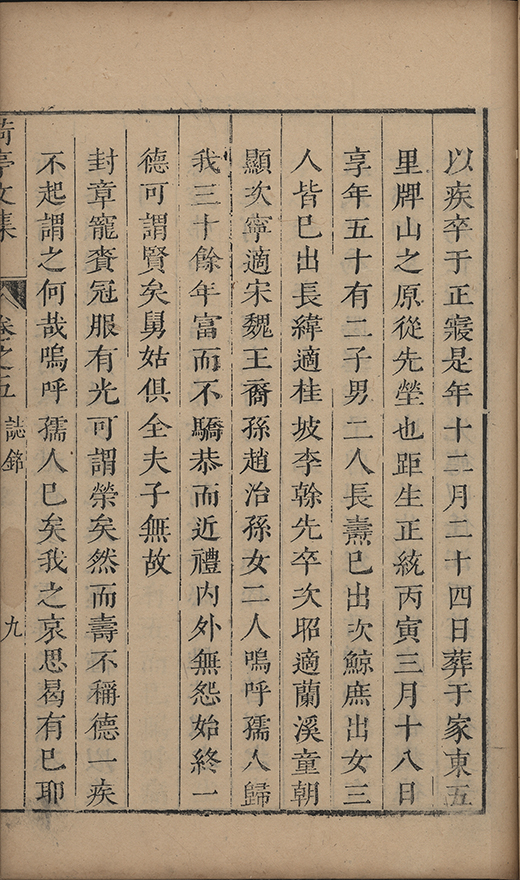 以疾卒于正寢是年十二月二十四日葬于家東五
里牌山之原從先塋也距生正統丙寅三月十八日
享年五十有二子男二人長燾已出次鯨庶出女三
人皆已出長緯適桂坡李榦先卒次昭適蘭溪童朝
顯次寧適宋魏王裔孫趙治孫女二人嗚呼孺人歸
我三十餘年富而不驕恭而近禮內外無怨始終一
德可謂賢矣舅姑俱全夫子無故
封章寵賚冠服有光可謂榮矣然而壽不稱德一疾
不起謂之何哉嗚呼孺人已矣我之哀思曷有已耶
荷亭文集 卷之五 誌銘 九